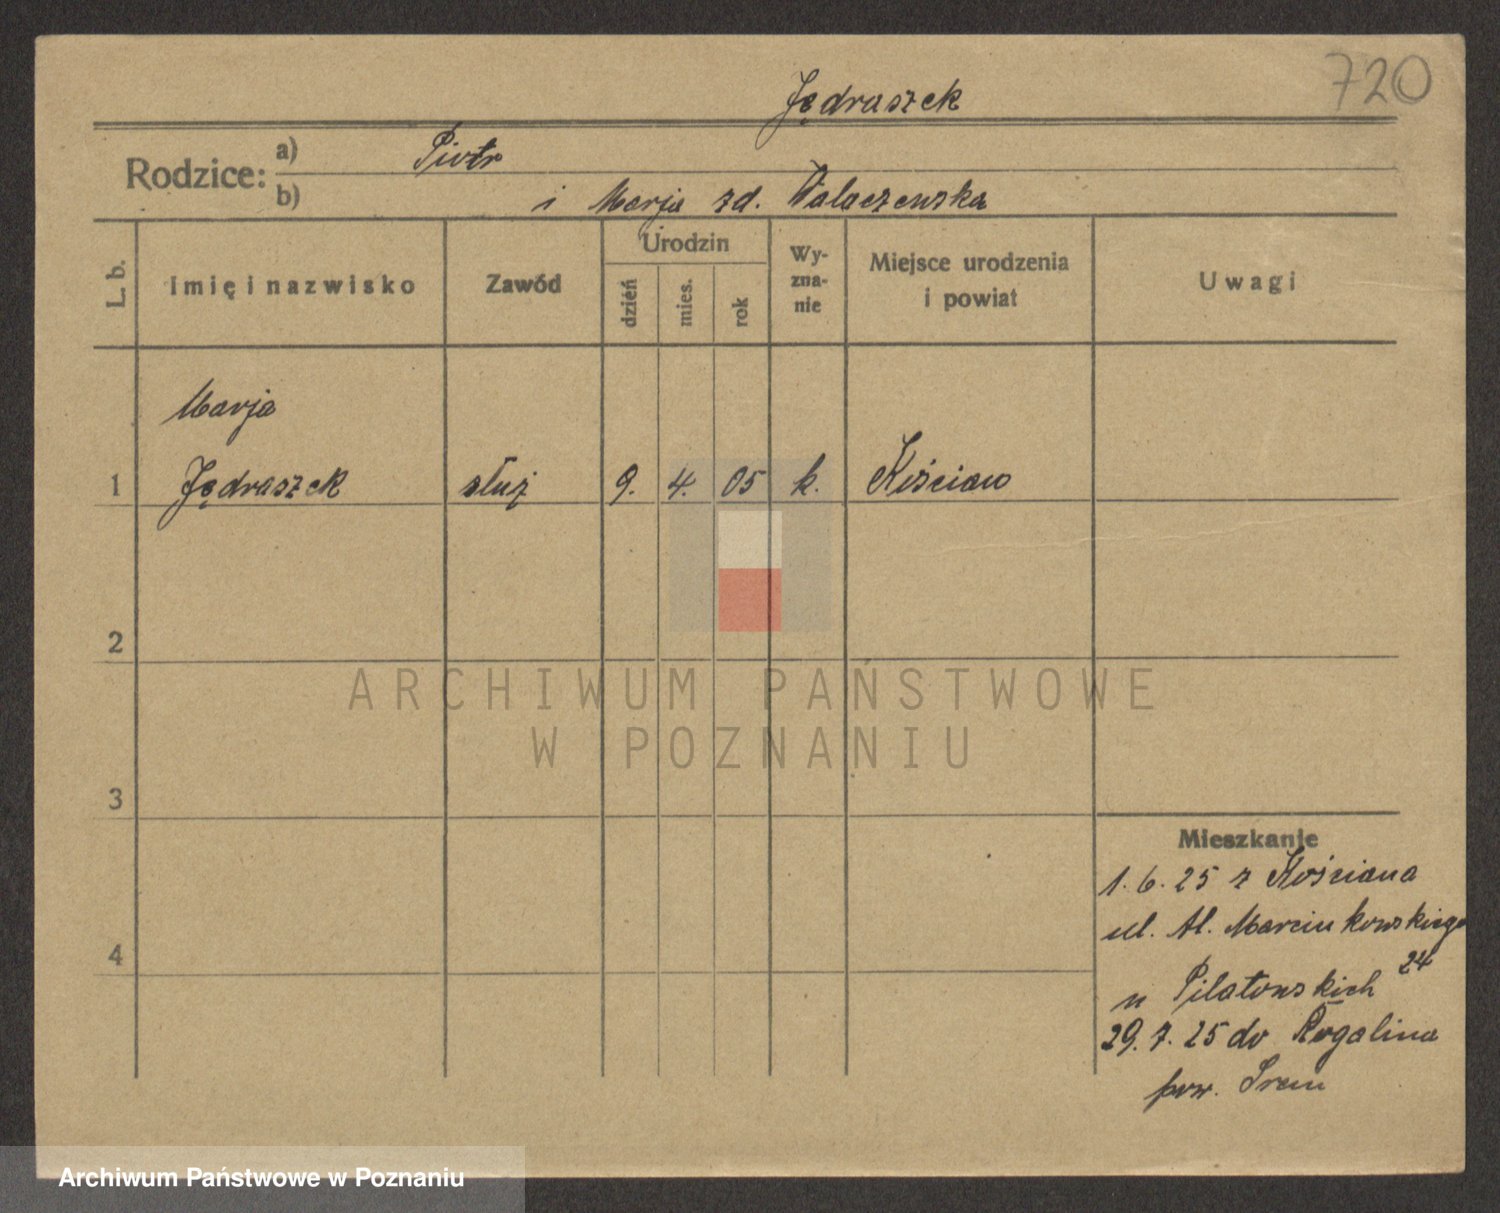 720
Jędraszek
Rodzice: a) Piotr
b) i Marja zd. Walaczewska
L. b.
Imię i nazwisko
Zawód
Urodzin
dzień
mies.
rok
Wy-
zna-
nie
Miejsce urodzenia
i powiat
Uwagi
Marja
1 Jędraszek służ 9. 4. 05 k. Kościan
2
3
4
Mieszkanie
1. 6. 25 z Kościana
ul. Al. Marcinkowskiego
24
u Pilatowskich
29. 7. 25 do Rogalina
pow. Śrem
ARCHIWUM PAŃSTWOWE
W POZNANIU
Archiwum Państwowe w Poznaniu